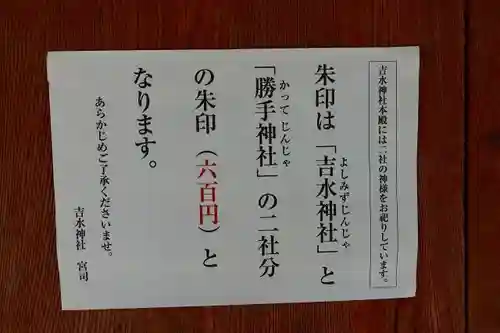 吉水神社本殿には二社の神様をお祀りしています。
朱印は「吉水神社」と
よしみずじんじゃ
「勝手神社」の二社分
かってじんじゃ
の朱印（六百円）と
なります。
あらかじめご了承くださいませ。
吉水神社 宮司